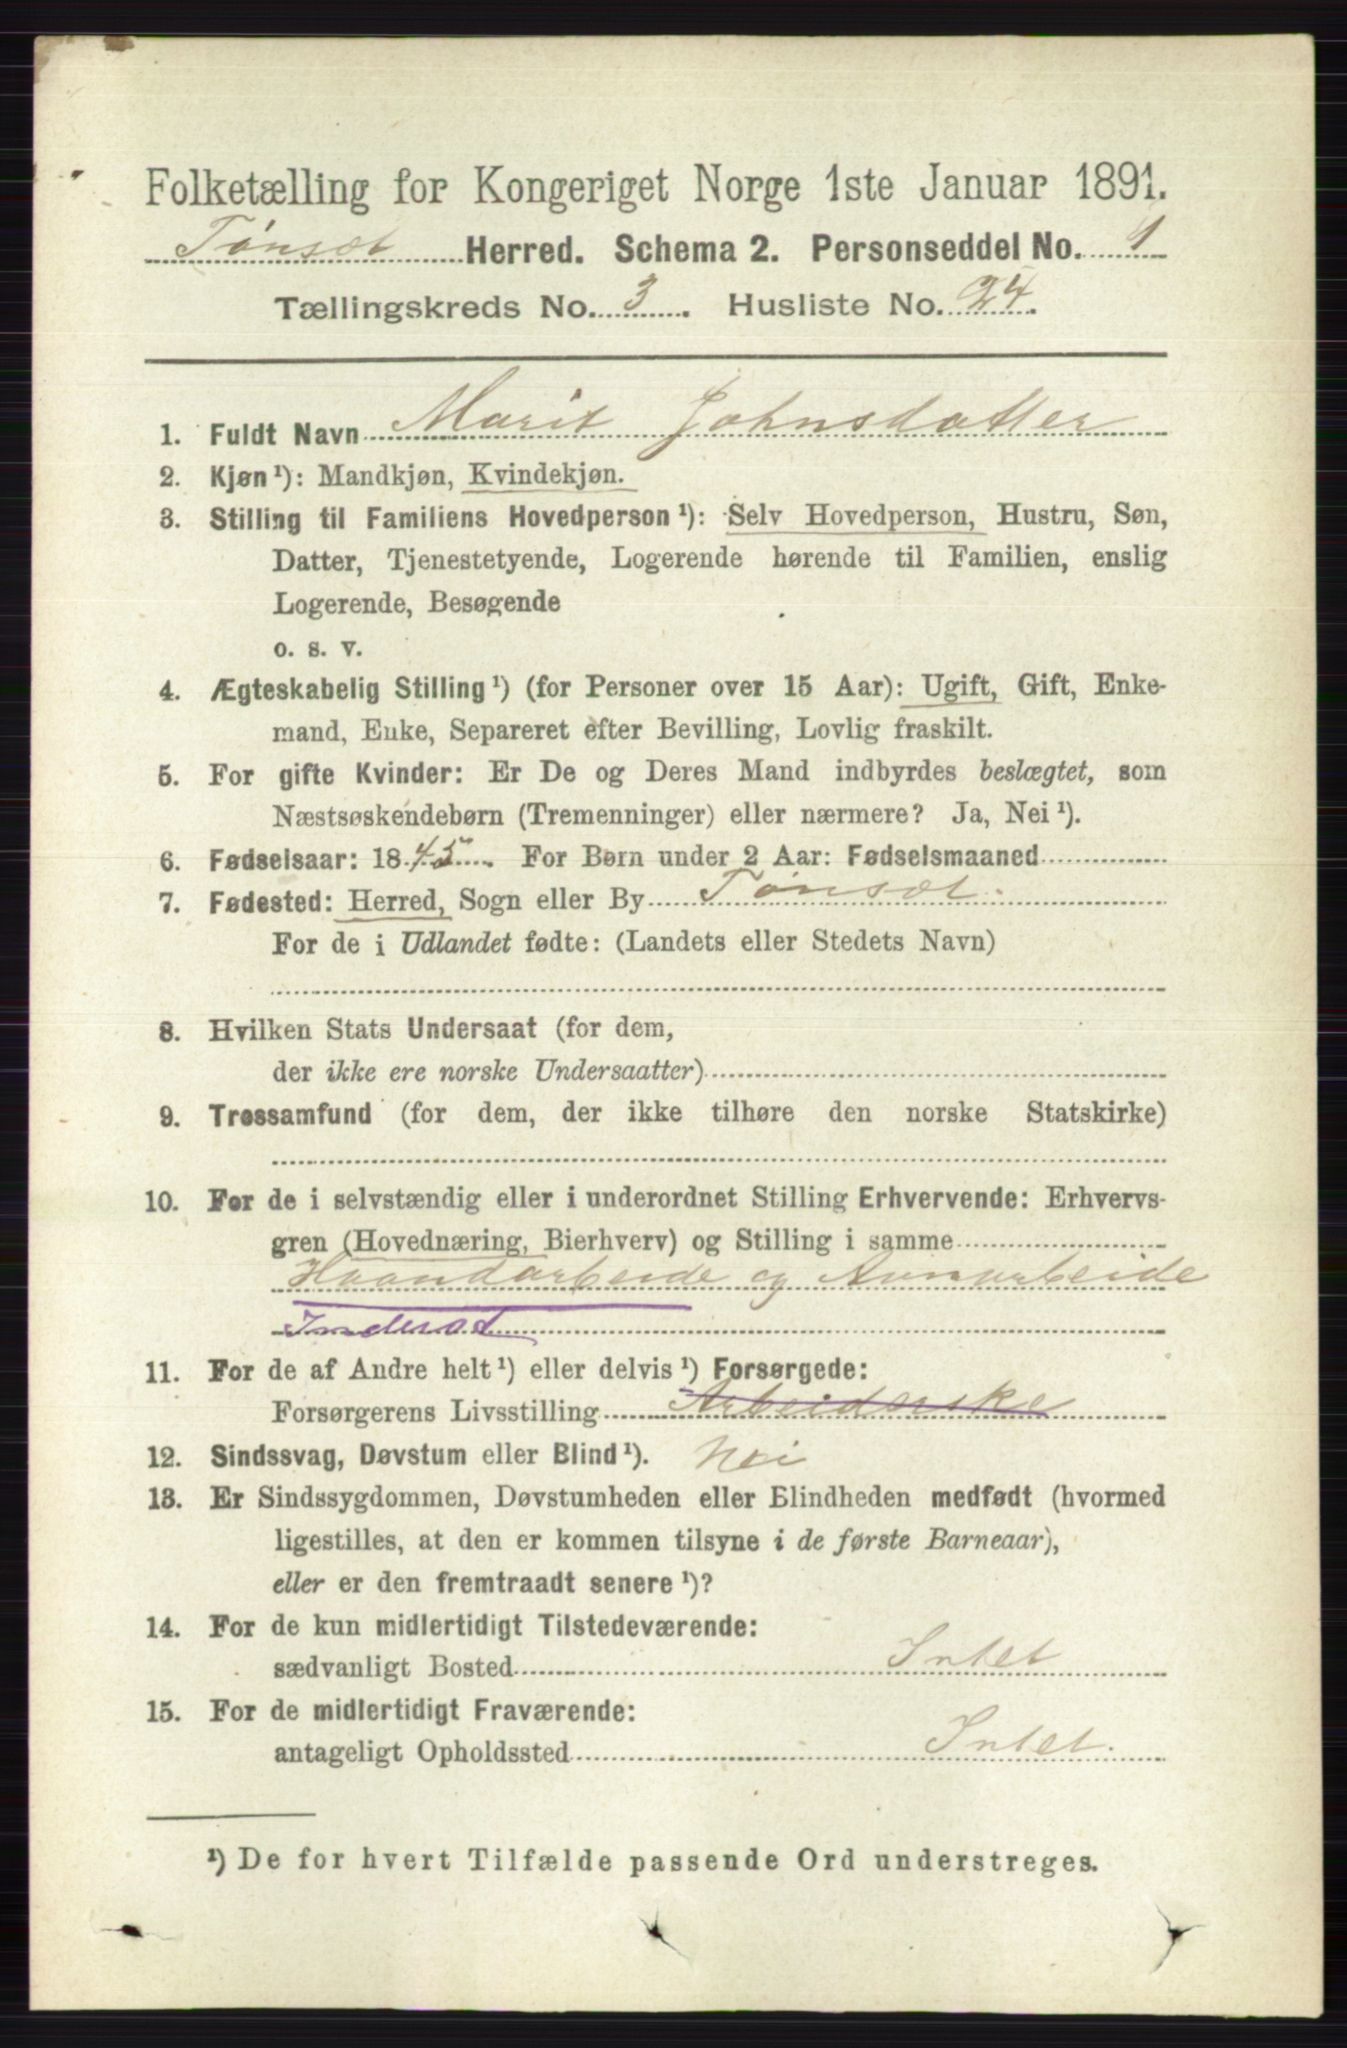 Folketælling for Kongeriget Norge 1ste Januar 1891.
Tønset Herred. Schema 2. Personseddel No. 1
Tællingskreds No. 3. Husliste No. 24.
1. Fuldt Navn Marit Johnsdatter
2. Kjøn¹): Mandkjøn, Kvindekjøn.
3. Stilling til Familiens Hovedperson¹): Selv Hovedperson, Hustru, Søn,
Datter, Tjenestetyende, Logerende hørende til Familien, enslig
Logerende, Besøgende
o. s. v.
4. Ægteskabelig Stilling¹) (for Personer over 15 Aar): Ugift, Gift, Enke-
mand, Enke, Separeret efter Bevilling, Lovlig fraskilt.
5. For gifte Kvinder: Er De og Deres Mand indbyrdes beslægtet, som
Næstsøskendebørn (Tremenninger) eller nærmere? Ja, Nei¹).
6. Fødselsaar: 1845. For Børn under 2 Aar: Fødselsmaaned
7. Fødested: Herred, Sogn eller By Tønset.
For de i Udlandet fødte: (Landets eller Stedets Navn)
8. Hvilken Stats Undersaat (for dem,
der ikke ere norske Undersaatter)
9. Trossamfund (for dem, der ikke tilhøre den norske Statskirke)
10. For de i selvstændig eller i underordnet Stilling Erhvervende: Erhvervs-
gren (Hovednæring, Bierhverv) og Stilling i samme
Haandarbeide og Annarbeide
Inderod
11. For de af Andre helt¹) eller delvis¹) Forsørgede:
Forsørgerens Livsstilling Arbeiderske
12. Sindssvag, Døvstum eller Blind¹). Nei
13. Er Sindssygdommen, Døvstumheden eller Blindheden medfødt (hvormed
ligestilles, at den er kommen tilsyne i de første Barneaar),
eller er den fremtraadt senere¹)?
14. For de kun midlertidigt Tilstedeværende:
sædvanligt Bosted Intet
15. For de midlertidigt Fraværende:
antageligt Opholdssted Intet.
¹) De for hvert Tilfælde passende Ord understreges.